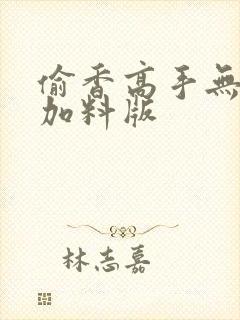 偷香高手無
加料版
林志嘉